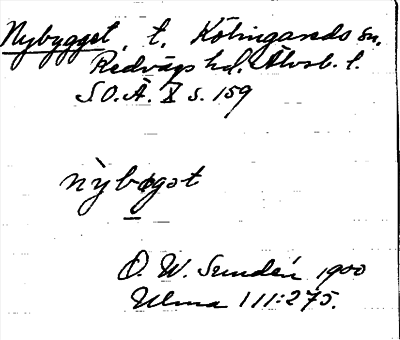 Nybygget, t. Kölingareds sn.
Redvägs hd. Älvsb. l.
S.O.Ä. X s. 159
nỳbygot
O. W. Sundén 1900
Ulma 111:275.